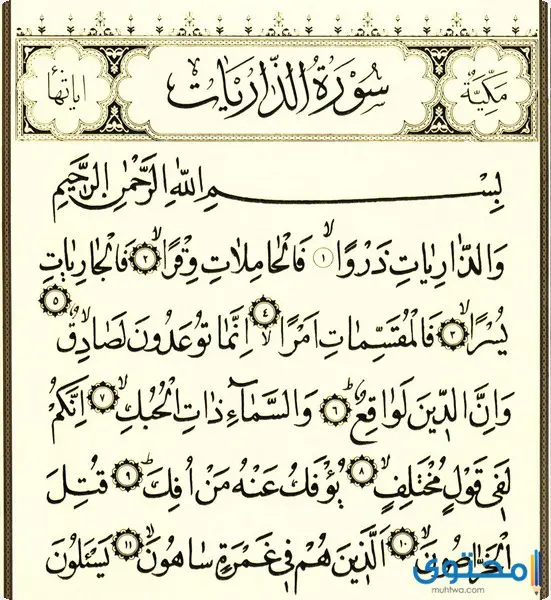 مكية سورة الذاريات اياتها
بِسْمِ اللّٰهِ الرَّحْمٰنِ الرَّحِيمِ
وَالذَّارِيَاتِ ذَرْوًاۙ ١ فَالْحَامِلَاتِ وِقْرًاۙ ٢ فَالْجَارِيَاتِ
يُسْرًاۙ ٣ فَالْمُقَسِّمَاتِ اَمْرًاۙ ٤ اِنَّمَا تُوعَدُونَ لَصَادِقٌۙ ٥
وَاِنَّ الدّ۪ينَ لَوَاقِعٌۜ ٦ وَالسَّمَٓاءِ ذَاتِ الْحُبُكِۙ ٧ اِنَّكُمْ
لَف۪ي قَوْلٍ مُخْتَلِفٍۙ ٨ يُؤْفَكُ عَنْهُ مَنْ اُفِكَۜ ٩ قُتِلَ
الْخَرَّاصُونَۙ ١٠ اَلَّذ۪ينَ هُمْ ف۪ي غَمْرَةٍ سَاهُونَۙ ١١ يَسْـَٔلُونَ
محتوى
muhtwa.com